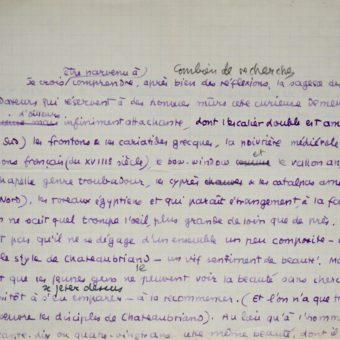 être parvenu à) Combien de recherche
Je crois/comprendre, après bien des réflexions, la sagesse des
qui réservent à des hommes mûrs cette curieuse
d'ailleurs
infiniment attachante, dont l'escalier double est
Sud) les frontons & les cariatides grecques, la poivrière médiévale
français (du XVIIIe siècle), le bow-window et le vallon
chapelle genre troubadour, les cyprès & les catalpas
Nord), les roseaux égyptiens et qui paraît étrangement à la
ne sait quel trompe l'oeil plus grande de loin que de près.
pas qu'il ne se dégage d'un ensemble un peu composite –
le style de Chateaubriand – un vif sentiment de beauté.
le
que les jeunes gens ne peuvent voir la beauté sans
se jeter dessus
à s'en emparer – à la recommencer. (et l'on n'a que
les disciples de Chateaubriand). Au lieu qu'à l'homme
dix ou quatre-vingts ans une même beauté, dont il